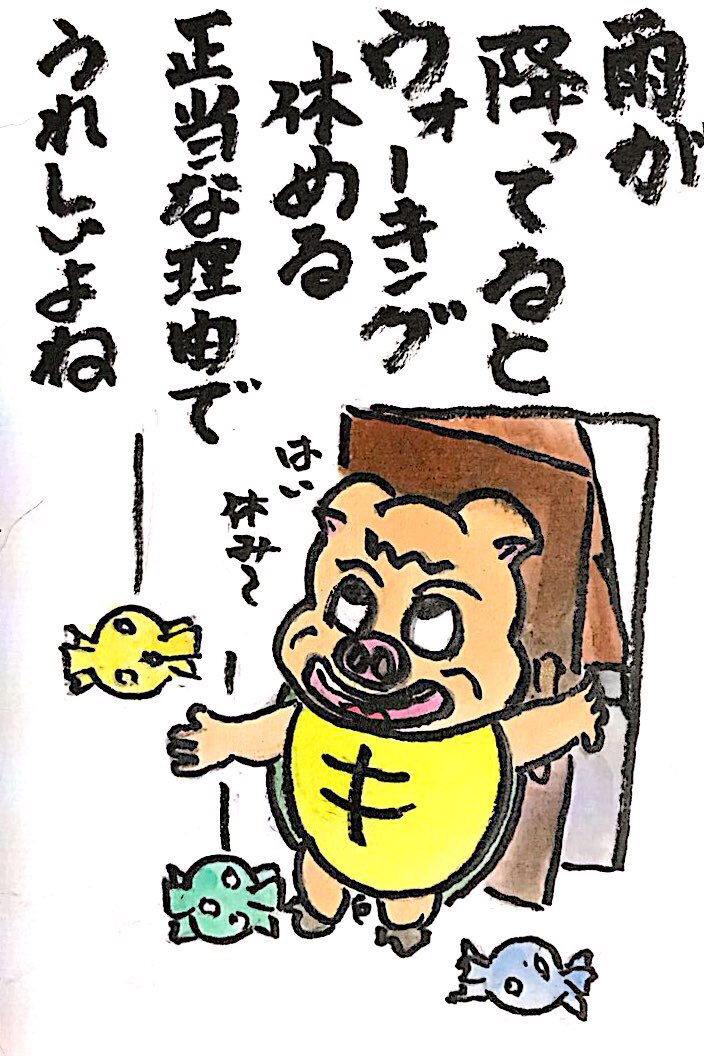 雨が
降ってると
ウォーキング
休める
正当な理由で
うれしいよね
はい
休み〜
キ